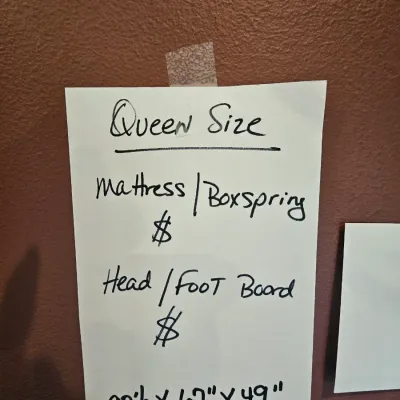 Queen Size
Mattress/Boxspring
$
Head/Foot Board
$
x 67" x 49"